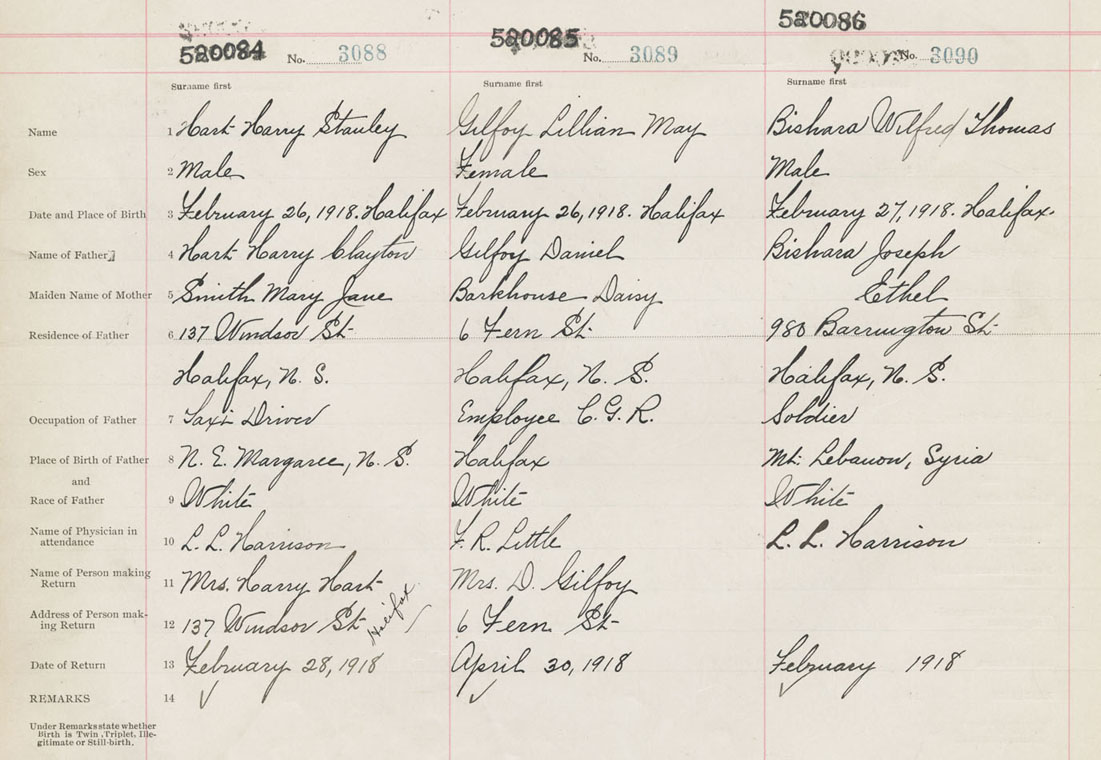 520084 No. 3088 520085 No. 3089 520086 No. 3090
Surname first Surname first Surname first
Name 1 Hart Harry Stanley Gilfoy Lillian May Bishara Wilfred Thomas
Sex 2 Male Female Male
Date and Place of Birth 3 February 26, 1918. Halifax February 26, 1918. Halifax February 27, 1918. Halifax.
Name of Father 4 Hart Harry Clayton Gilfoy Daniel Bishara Joseph
Maiden Name of Mother 5 Smith Mary Jane Barkhouse Daisy Ethel
Residence of Father 6 137 Windsor St. 6 Fern St. 980 Barrington St.
Halifax, N. S. Halifax, N. S. Halifax, N. S.
Occupation of Father 7 Taxi Driver Employee C. G. R. Soldier
Place of Birth of Father 8 N. E. Margaree, N. S. Halifax Mt. Lebanon, Syria
and
Race of Father 9 White White White
Name of Physician in
attendance 10 L. L. Harrison F. R. Little L. L. Harrison
Name of Person making
Return 11 Mrs. Harry Hart Mrs. D. Gilfoy
Address of Person mak-
ing Return 12 137 Windsor St. Halifax 6 Fern St.
Date of Return 13 February 28, 1918 April 30, 1918 February 1918
REMARKS 14
Under Remarks state whether
Birth is Twin, Triplet, Ille-
gitimate or Still-birth.